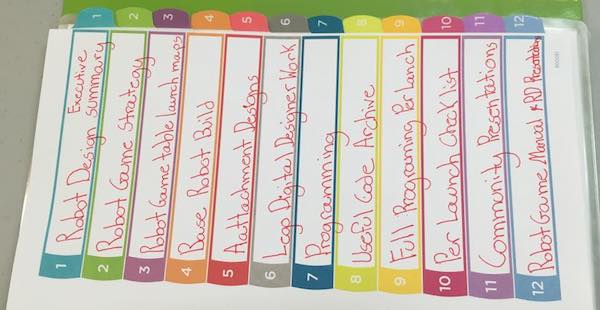 1 Robot Design Executive Summary
2 Robot Game Strategy
3 Robot Game table Launch maps
4 Base Robot Build
5 Aattachment Designs
6 Lego Digital Designer Work
7 Programming
8 Useful Code Archive
9 Full Programing Per Lanch
10 Per Launch Check list
11 Community Presentations
12 Robot Game Manual & RD Presentation
1
2
3
4
5
6
7
8
9
10
11
12